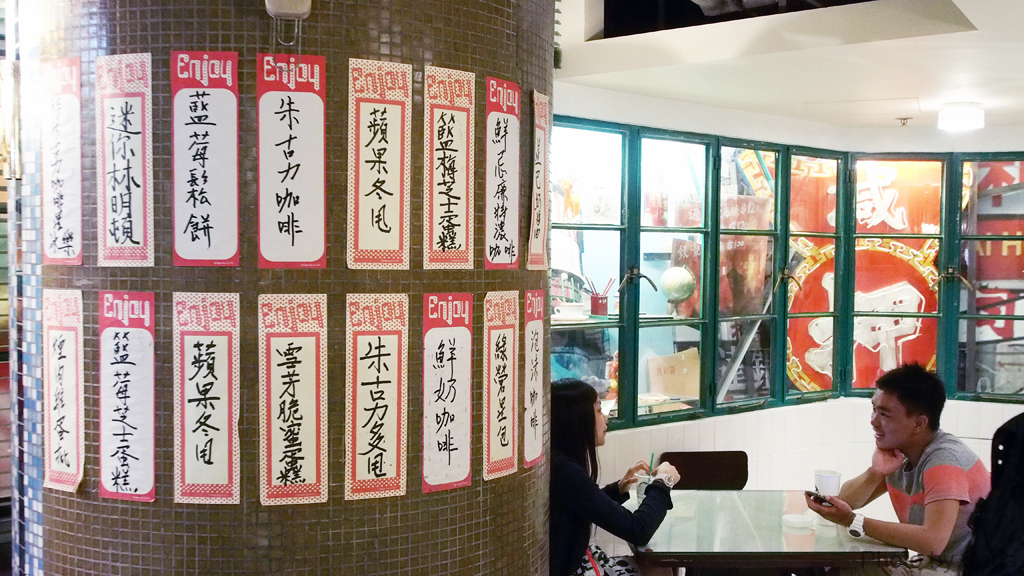 Enjoy
迷你林明頓
Enjoy
藍莓鬆餅
Enjoy
朱古力咖啡
Enjoy
蘋果冬甩
Enjoy
籃梅芝士蛋糕
Enjoy
鮮忌廉特濃咖啡
Enjoy
Enjoy
籃莓芝士蛋糕
Enjoy
蘋果冬甩
Enjoy
雪芳脆蜜蛋糕
Enjoy
朱古力冬甩
Enjoy
鮮奶咖啡
Enjoy
Enjoy
泡沫咖啡
押